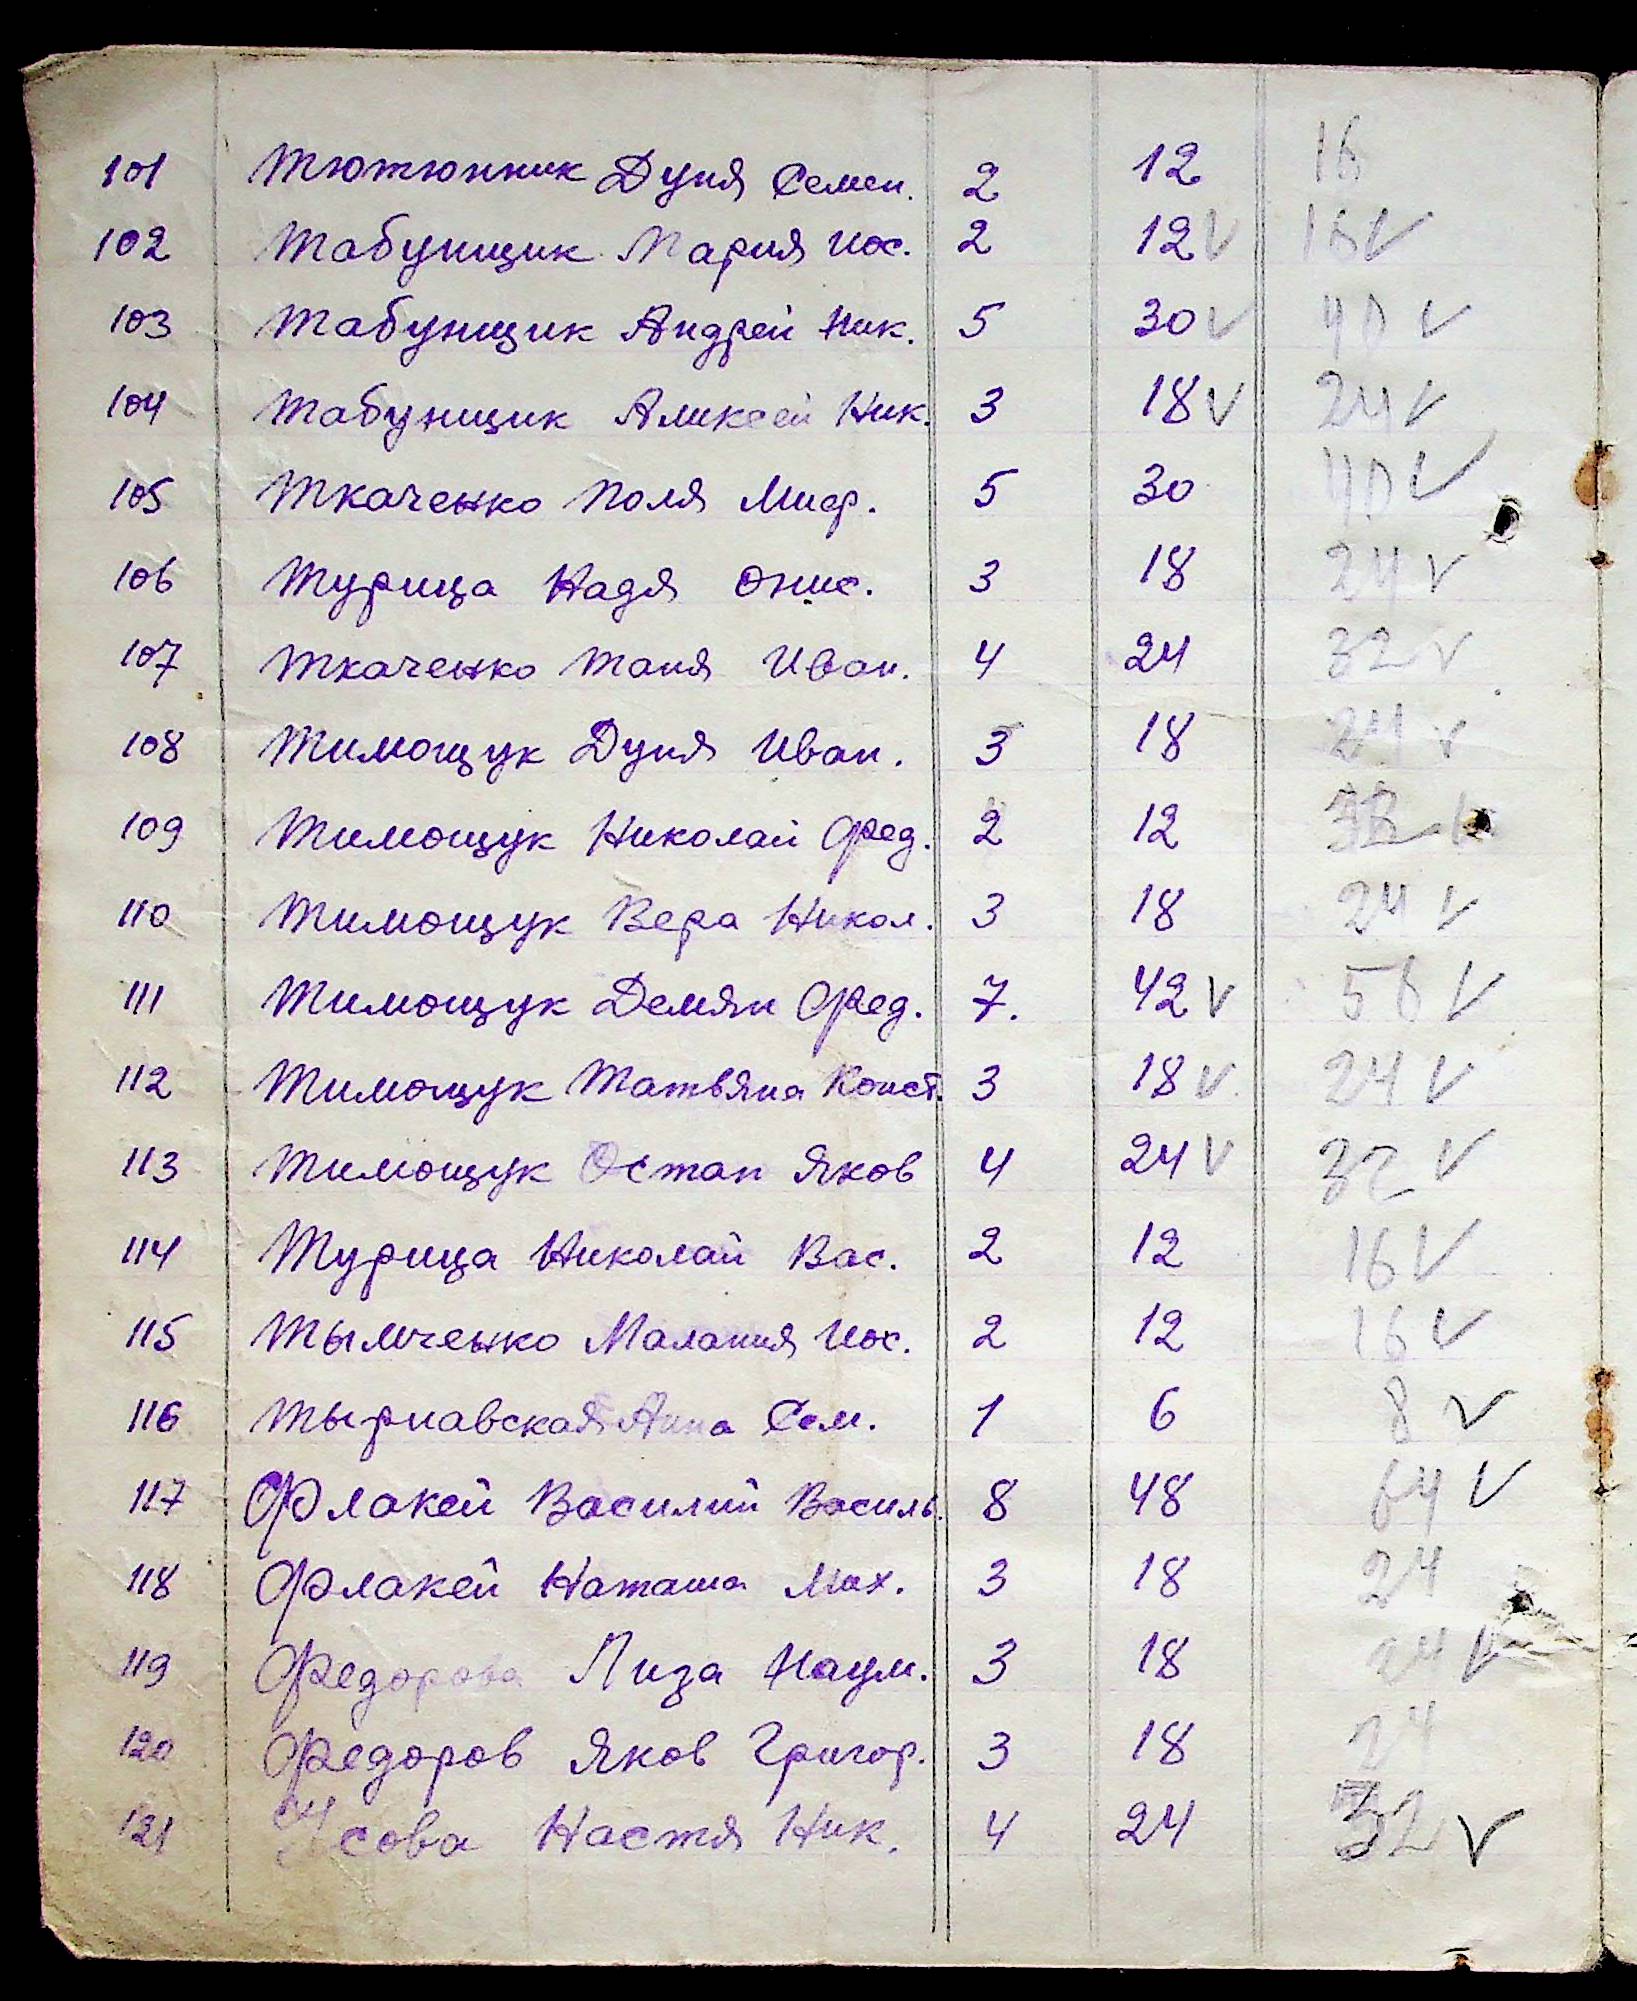 101 Тютюнник Дуня Семен. 2 12 16
102 Табунщик Мария Иос. 2 12 V 16 V
103 Табунщик Андрей Ник. 5 30 V 40 V
104 Табунщик Алексей Ник. 3 18 V 24 V
105 Ткаченко Поля Миф. 5 30 40 V
106 Турица Надя Онис. 3 18 24 V
107 Ткаченко Таня Иван. 4 24 32 V
108 Тимощук Дуня Иван. 3 18 24 V
109 Тимощук Николай Фед. 2 12
110 Тимощук Вера Никол. 3 18 24 V
111 Тимощук Демян Фед. 7. 42 V 56 V
112 Тимощук Татьяна Конст. 3 18 V 24 V
113 Тимощук Остап Яков 4 24 V 32 V
114 Турица Николай Вас. 2 12 16 V
115 Тымченко Малания Иос. 2 12 16 V
116 Тырнавская Анна Сем. 1 6 8 V
117 Флакей Василий Василь. 8 48 64 V
118 Флакей Наташа Мих. 3 18 24
119 Федорова Лиза Наум. 3 18 24 V
120 Федоров Яков Григор. 3 18 24
121 Усова Настя Ник. 4 24 32 V